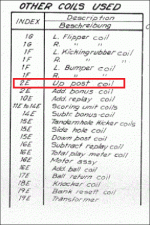 OTHER COILS USED
INDEX Description
Beschreibung
1G L. Flipper coil
1G R. " "
1F L. Kickingrubber coil
1F R. " "
1F L. Bumper coil
1F R. " "
2E Up post coil
2E Add. bonus coil
10E Add. replay coil
11E to 14E Scoring unit coils
14E Subtr. bonus coil
18E Tandemhole Kicker coils
15E Side hole coil
15E Down post coil
16E Subtract replay coil
16E Total play meter coil
16E Motor assy
Add. ball coil
17E Ball return coil
18E Knocker coil
19E Bank reset coil
19E Transformer